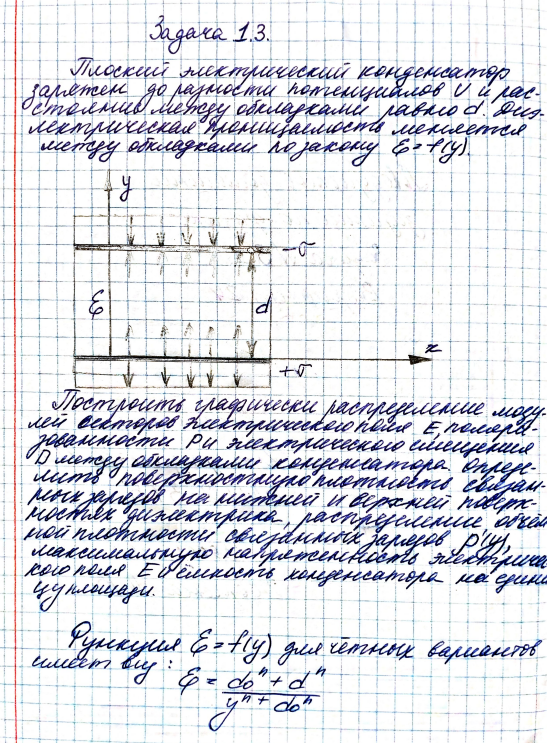 Задача 1.3.
Плоский электрический конденсатор
заряжен до разности потенциалов U и рас-
стояние между обкладками равно d. Диэ-
лектрическая проницаемость меняется
между обкладками по закону Ɛ = f(y).
y
-σ
Ɛ
d
x
+σ
Построить графически распределение моду-
лей векторов электрического поля E, поляри-
зованности P и электрического смещения
D между обкладками конденсатора. Опреде-
лить поверхностную плотность связан-
ных зарядов на нижней и верхней поверх-
ностях диэлектрика, распределение объём
ной плотности связанных зарядов ρ'(y),
максимальную напряженность электричес
кого поля E и ёмкость конденсатора на едини
цу площади.
Функция Ɛ = f(y) для чётных вариантов
имеет вид:
Ɛ = (d₀ⁿ + dⁿ) / (yⁿ + d₀ⁿ)